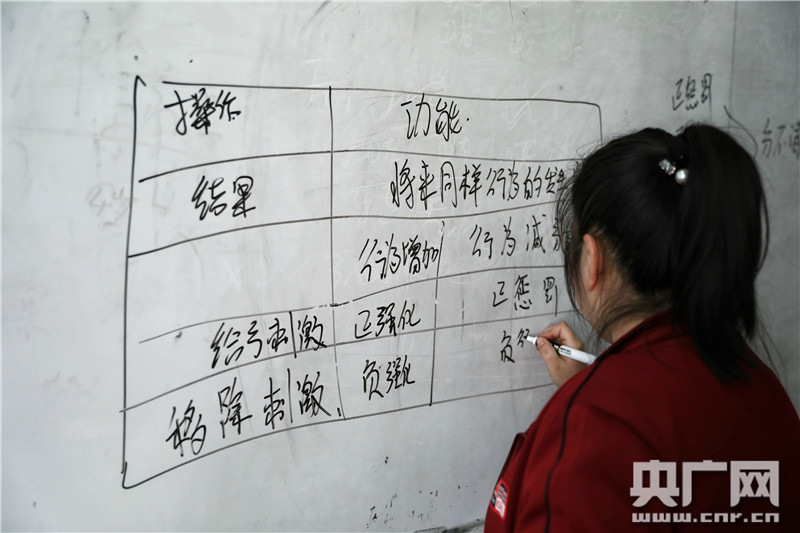 操作 功能
正惩罚
结果 将来同样行为的发
分不清
行为增加 行为减
给予刺激 正强化 正惩罚
移除刺激 负强化 负
央广网
www.cnr.cn